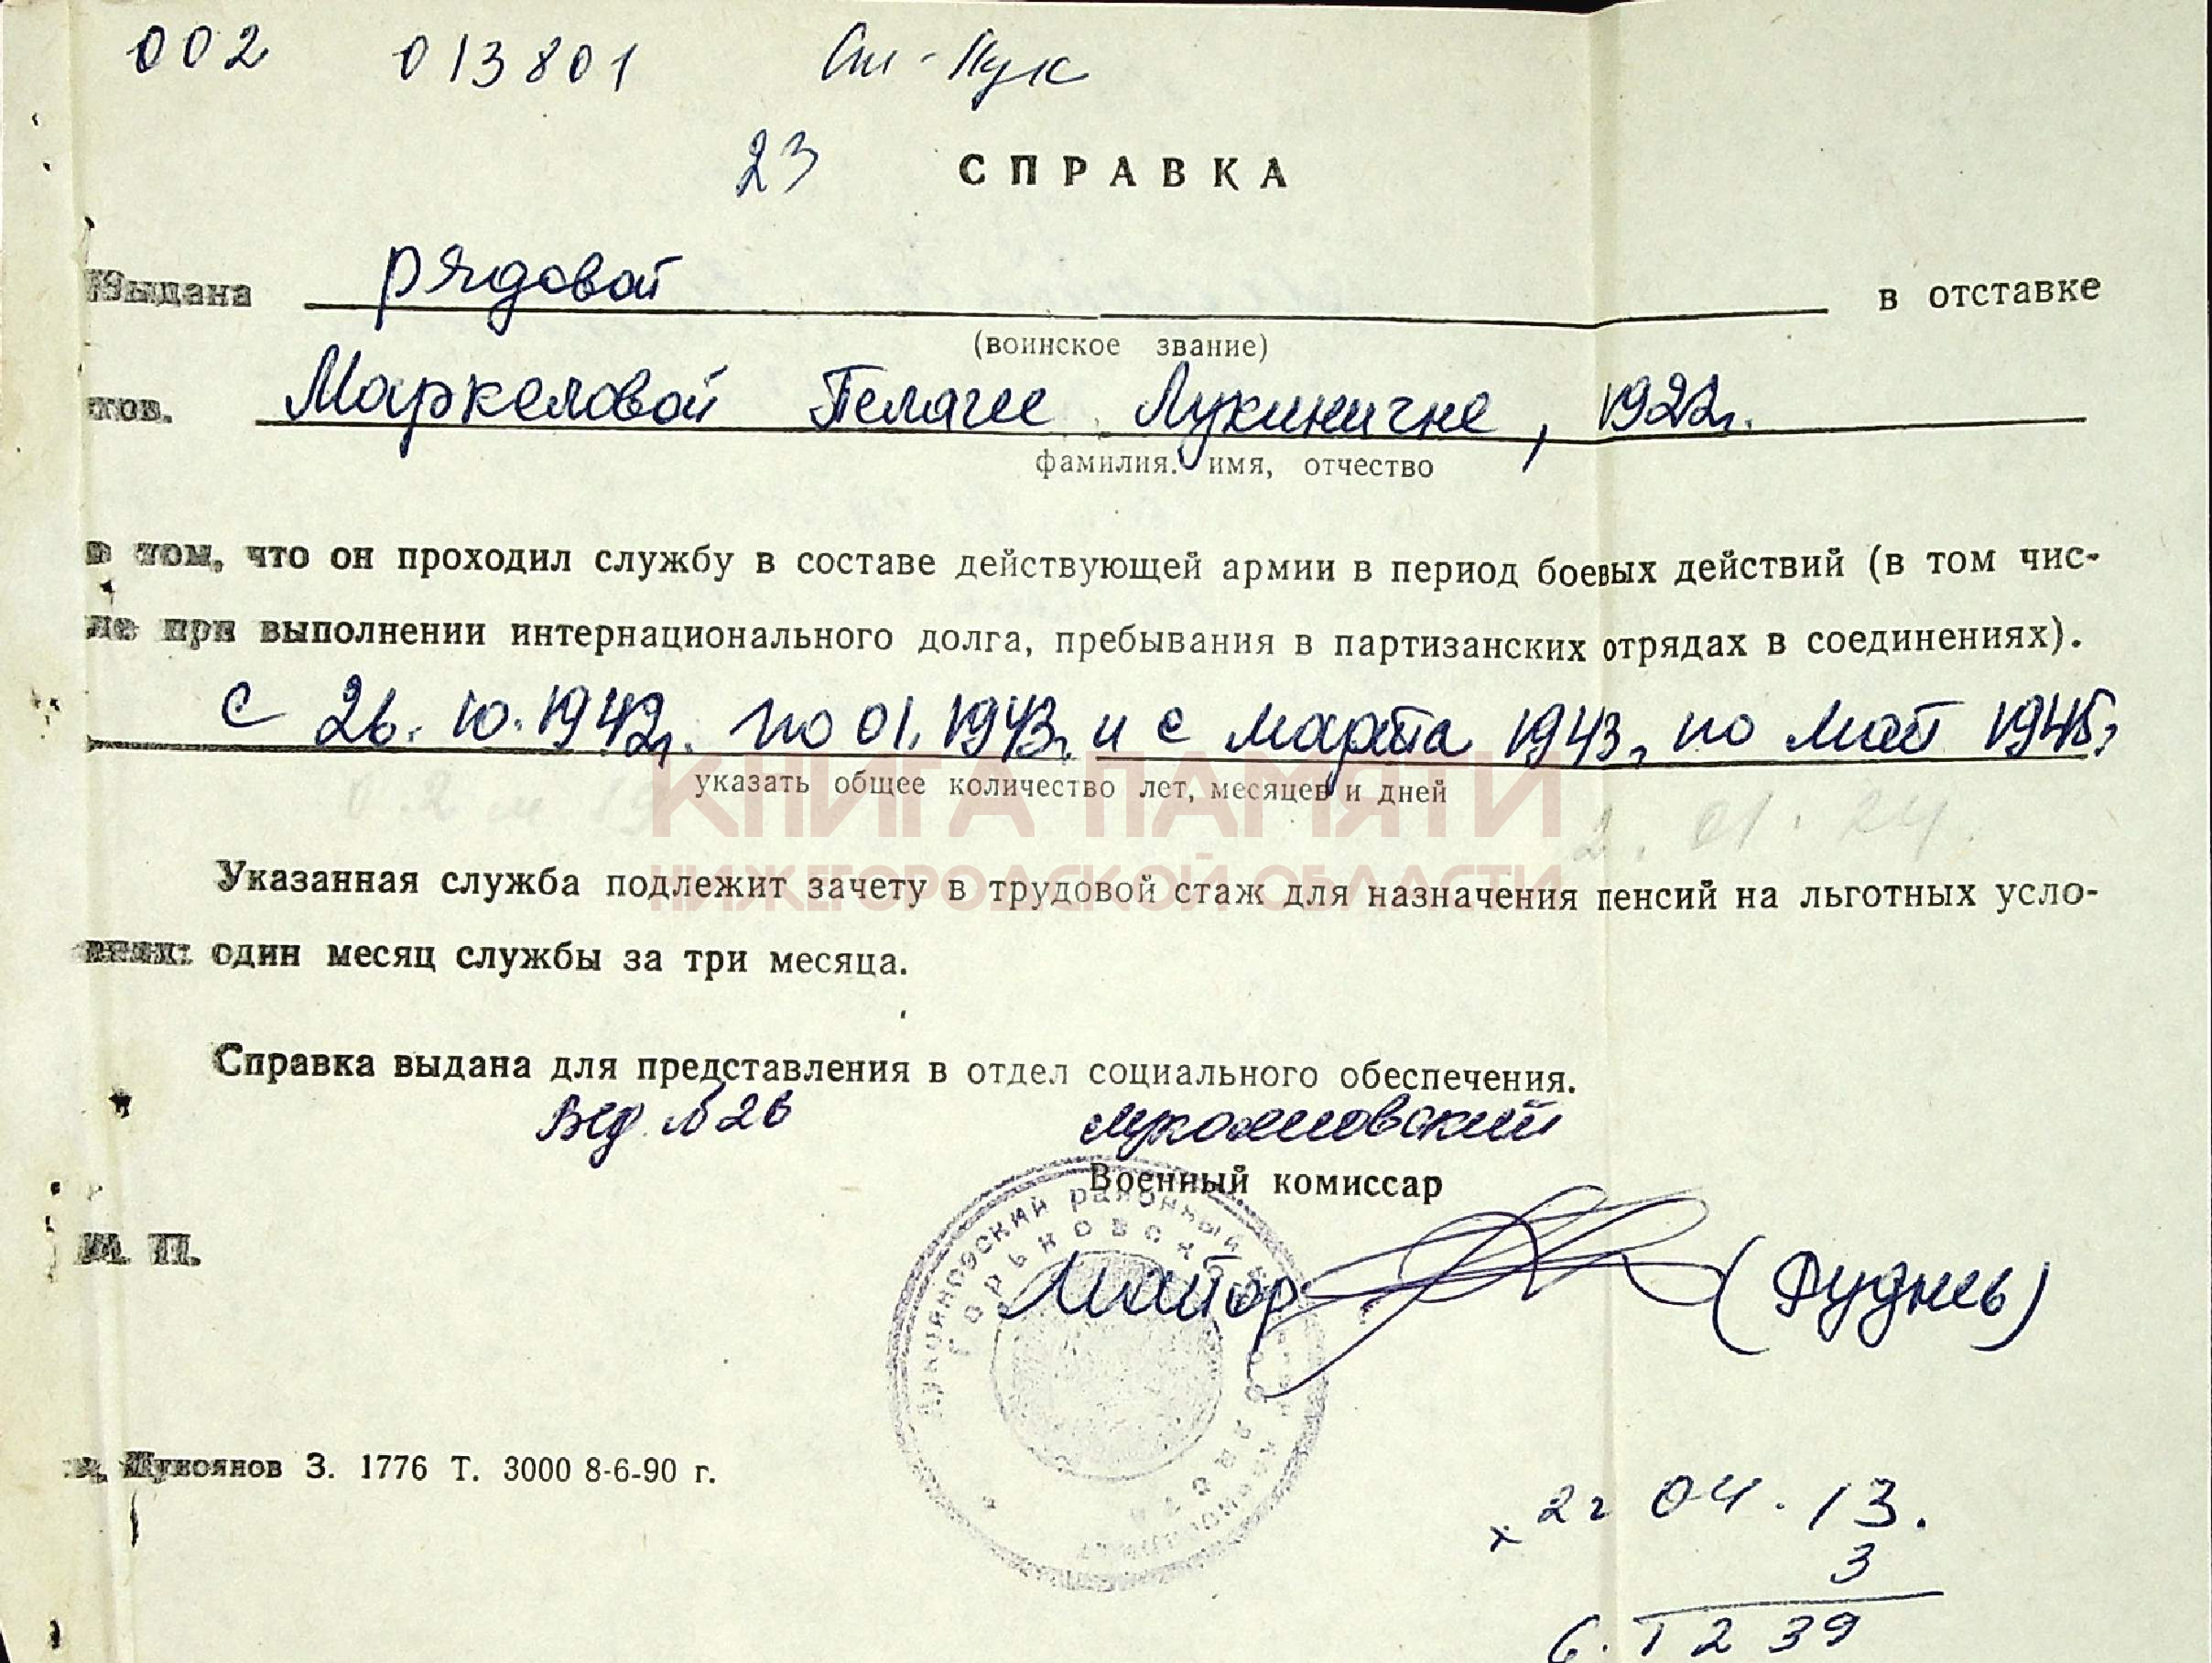 002 013801
23 СПРАВКА
Выдана рядовой в отставке
(воинское звание)
тов. Маркеловой Пелагее Лукиничне, 1922г.
фамилия. имя, отчество
в том, что он проходил службу в составе действующей армии в период боевых действий (в том чис-
ле при выполнении интернационального долга, пребывания в партизанских отрядах в соединениях).
с 26.10.1942г. по 01.1943г. и с марта 1943г. по май 1945г.
указать общее количество лет, месяцев и дней
2. 01. 24.
КНИГА ПАМЯТИ
НИЖЕГОРОДСКОЙ ОБЛАСТИ
Указанная служба подлежит зачету в трудовой стаж для назначения пенсий на льготных усло-
виях: один месяц службы за три месяца.
Справка выдана для представления в отдел социального обеспечения.
Вед. №26 Лукояновский
Военный комиссар
Лукояновский районный
Горьковской области
М. П.
Майор (Руднев)
г. Лукоянов З. 1776 Т. 3000 8-6-90 г.
х 2г 04. 13.
3